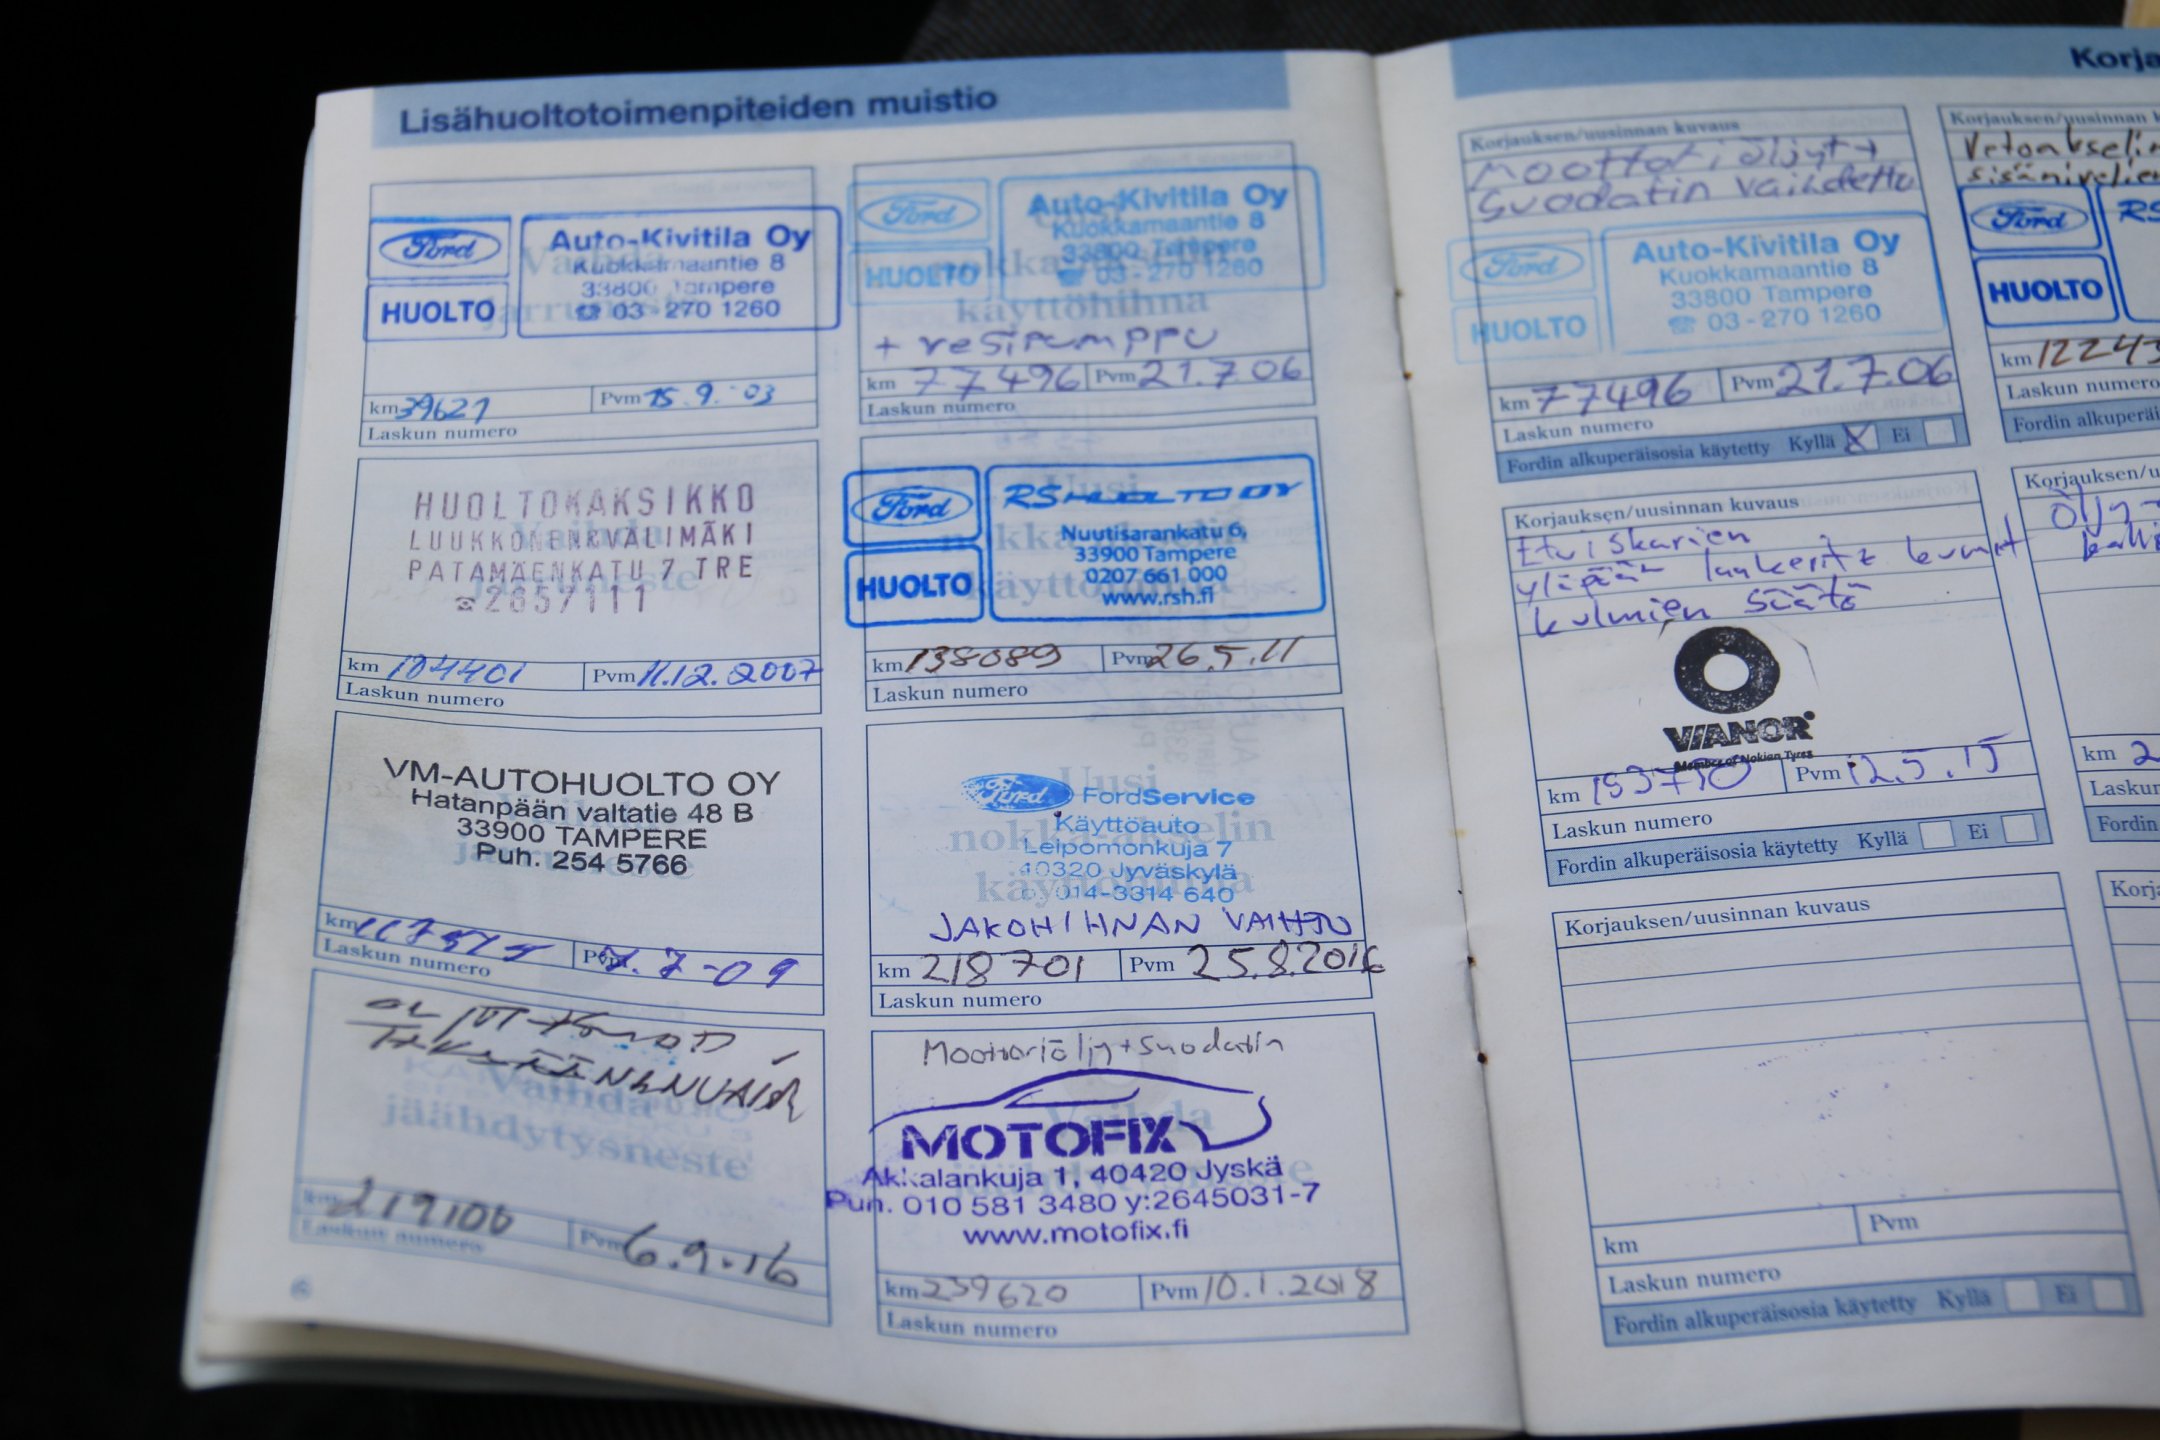 Lisähuoltotoimenpiteiden muistio
Vaihda
jarruneste
Ford
HUOLTO
Auto-Kivitila Oy
Kuokkamaantie 8
33800 Tampere
☎ 03-270 1260
km 39621 Pvm 15.9.-03
Laskun numero
HUOLTOKAKSIKKO
LUUKKONEN&VÄLIMÄKI
PATAMÄENKATU 7 TRE
☎2657111
Vaihda
jarruneste
km 104401 Pvm 11.12.2007
Laskun numero
VM-AUTOHUOLTO OY
Hatanpään valtatie 48 B
33900 TAMPERE
Puh. 254 5766
jarruneste
km Pvm
Laskun numero
Vaihda
jäähdytysneste
km 219100 Pvm 6.9.16
Laskun numero
Ford
HUOLTO
Auto-Kivitila Oy
Kuokkamaantie 8
33800 Tampere
☎ 03-270 1260
käyttöhihna
+ vesipumppu
km 77496 Pvm 21.7.06
Laskun numero
Uusi
nokka-akselin
käyttöhihna
Ford
HUOLTO
RS HUOLTO OY
Nuutisarankatu 6,
33900 Tampere
0207 661 000
www.rsh.fi
km 138089 Pvm 26.5.11
Laskun numero
Uusi
nokka-akselin
käyttöhihna
Ford FordService
Käyttöauto
Leipomonkuja 7
40320 Jyväskylä
014-3314 640
JAKOHIHNAN VAIHTO
km 218701 Pvm 25.8.2016
Laskun numero
Moottoriöljy+suodatin
Vaihda
MOTOFIX
Akkalankuja 1, 40420 Jyskä
Puh. 010 581 3480 y:2645031-7
www.motofix.fi
km 239620 Pvm 10.1.2018
Laskun numero
Korja
Korjauksen/uusinnan kuvaus
Moottoriöljyt+
Suodatin vaihdettu
Ford
HUOLTO
Auto-Kivitila Oy
Kuokkamaantie 8
33800 Tampere
☎ 03-270 1260
km 77496 Pvm 21.7.06
Laskun numero
Fordin alkuperäisosia käytetty Kyllä X Ei
Korjauksen/uusinnan kuvaus
Etuiskarien
yläpään laakerit+kumit
kulmien säätö
VIANOR
Member of Nokian Tyres
km Pvm 12.5.15
Laskun numero
Fordin alkuperäisosia käytetty Kyllä Ei
Korjauksen/uusinnan kuvaus
km Pvm
Laskun numero
Fordin alkuperäisosia käytetty Kyllä Ei
Korjauksen/uusinnan k
Vetoakselin
sisänivelien
Ford
HUOLTO
RS
km 12243
Laskun numero
Fordin alkuperäi
Korjauksen/u
Öljy
km 2
Laskun
Fordin
Korj